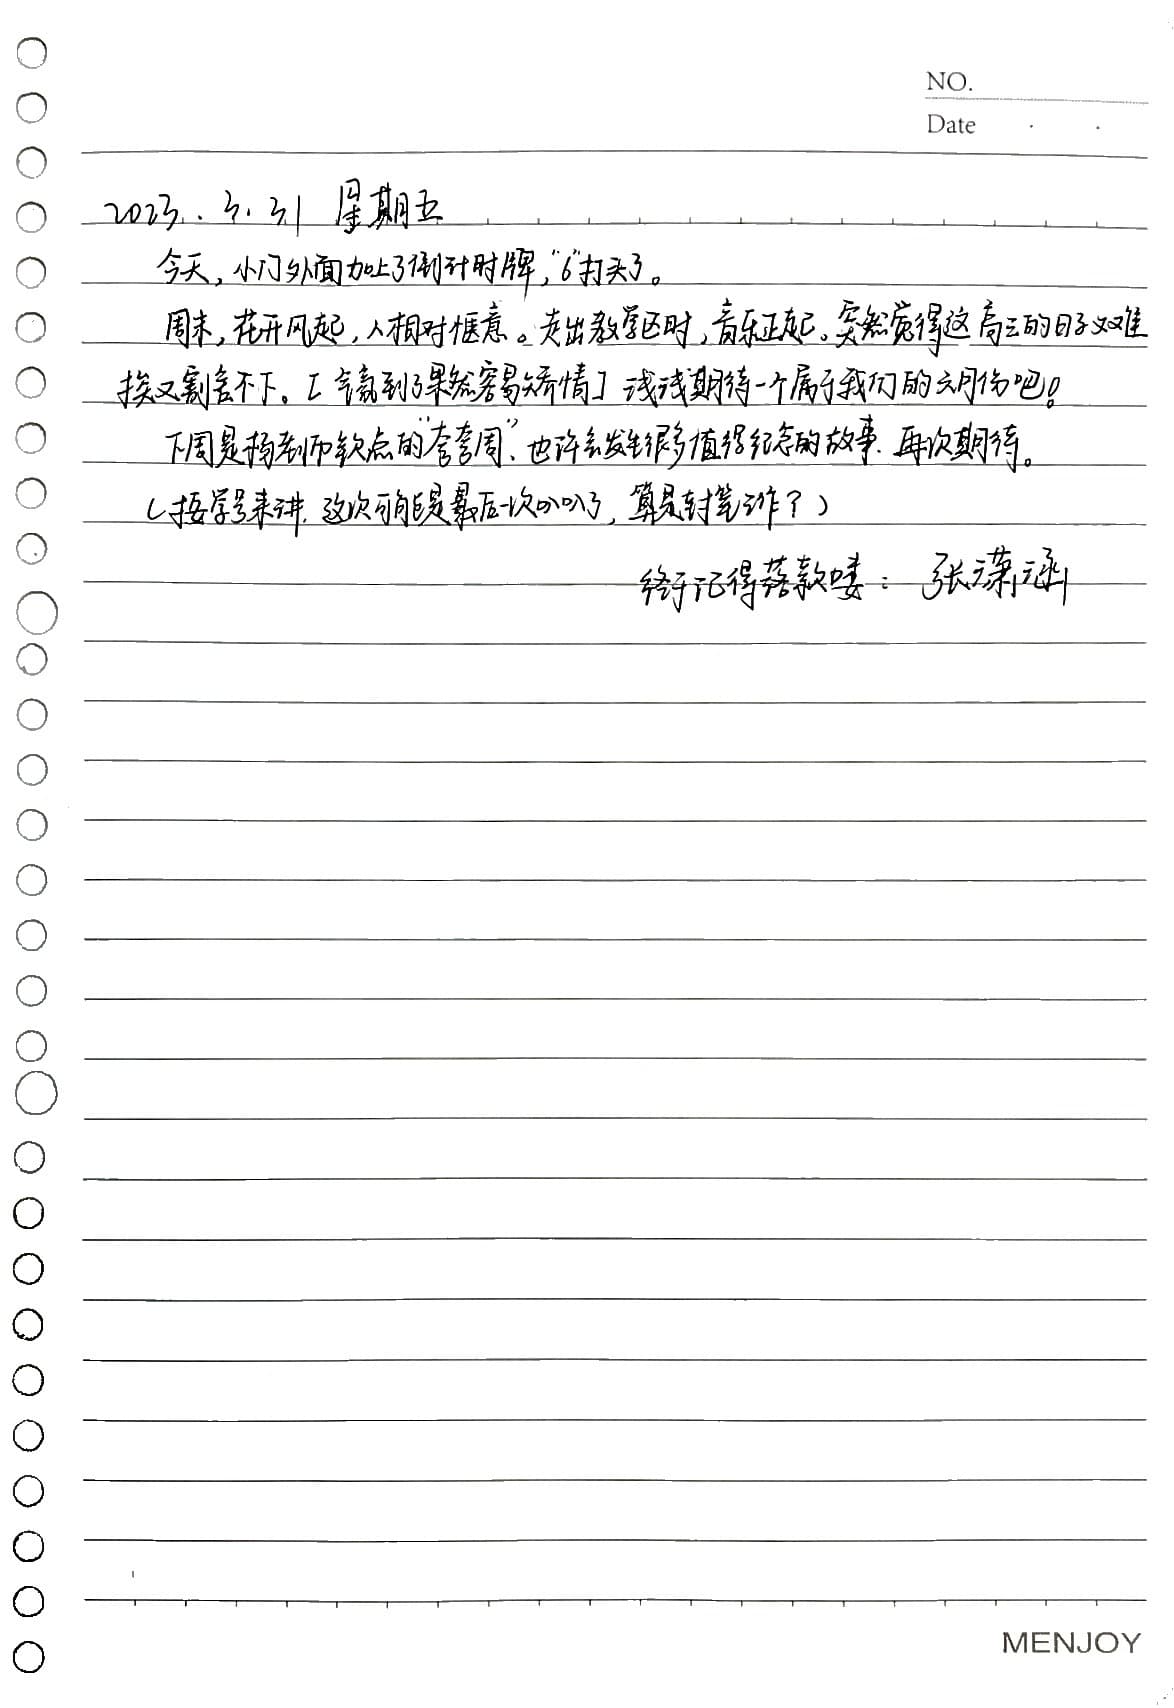 NO.
Date
2023.3.31 星期五
今天,小门外面加上了倒计时牌,"6"打头了。
周末,花开风起,人相对惬意。走出教学区时,音乐正起。突然觉得这高三的日子又难
挨又割舍不下。[气氛到了果然容易矫情] 浅浅期待一个属于我们的六月份吧!
下周是杨老师钦点的"套套周",也许会发生很多值得纪念的故事.再次期待。
(按学号来讲.这次可能是最后一次叭叭了,算是封笔之作?)
终于记得落款喽:张潇涵
MENJOY